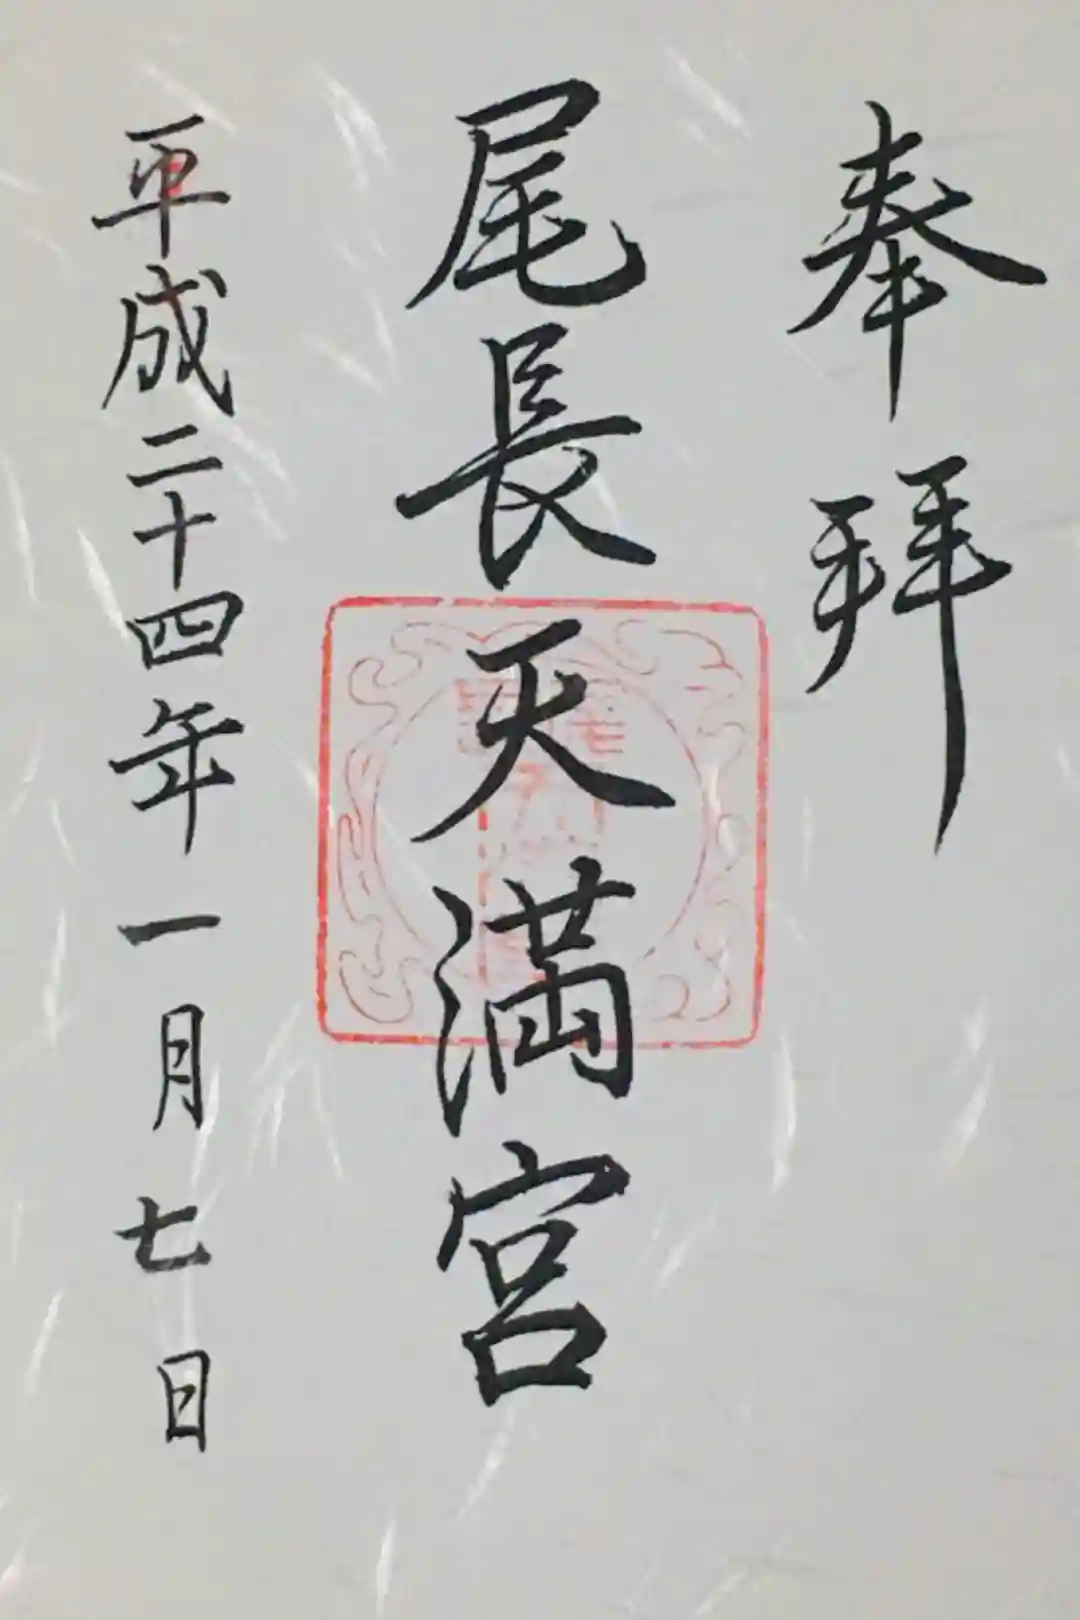 奉拝
尾長天満宮
平成二十四年一月七日